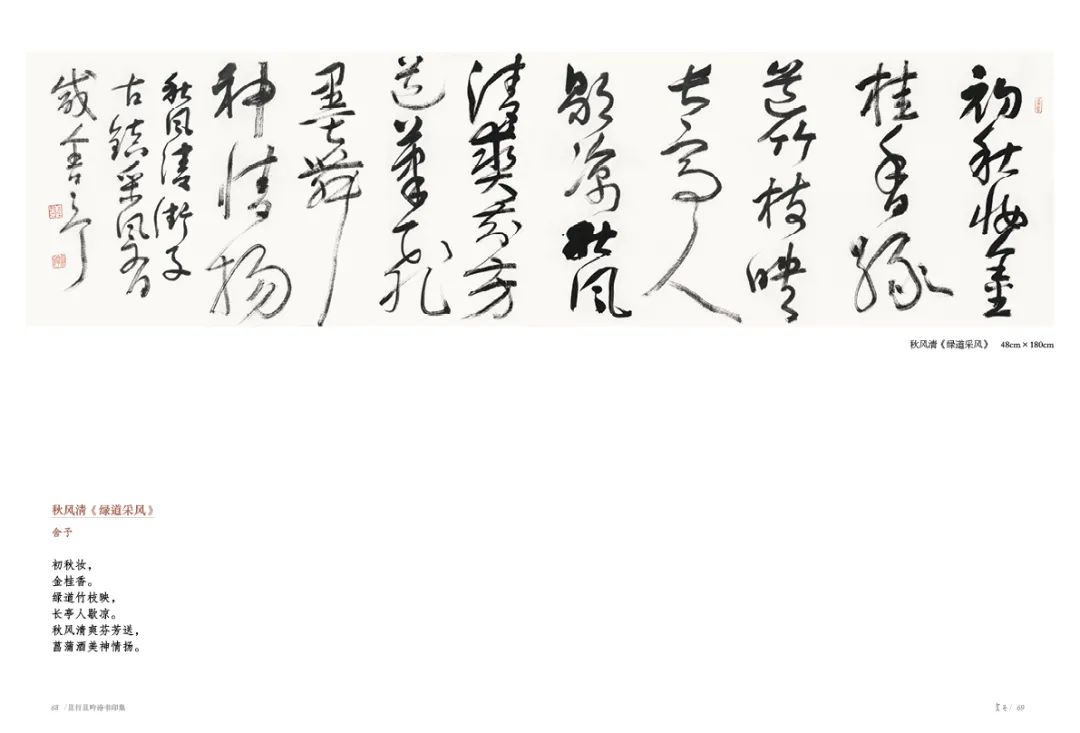 初秋妆金
桂香绿
道竹枝映
长亭人
歇凉秋风
清爽芬芳
送笔飞
墨舞
神情扬
秋风清街子
古镇采风有
感舍予
秋风清《绿道采风》 48cm × 180cm
秋风清《绿道采风》
舍予
初秋妆，
金桂香。
绿道竹枝映，
长亭人歇凉。
秋风清爽芬芳送，
菖蒲酒美神情扬。
68 / 且行且吟诗书印集
/ 69